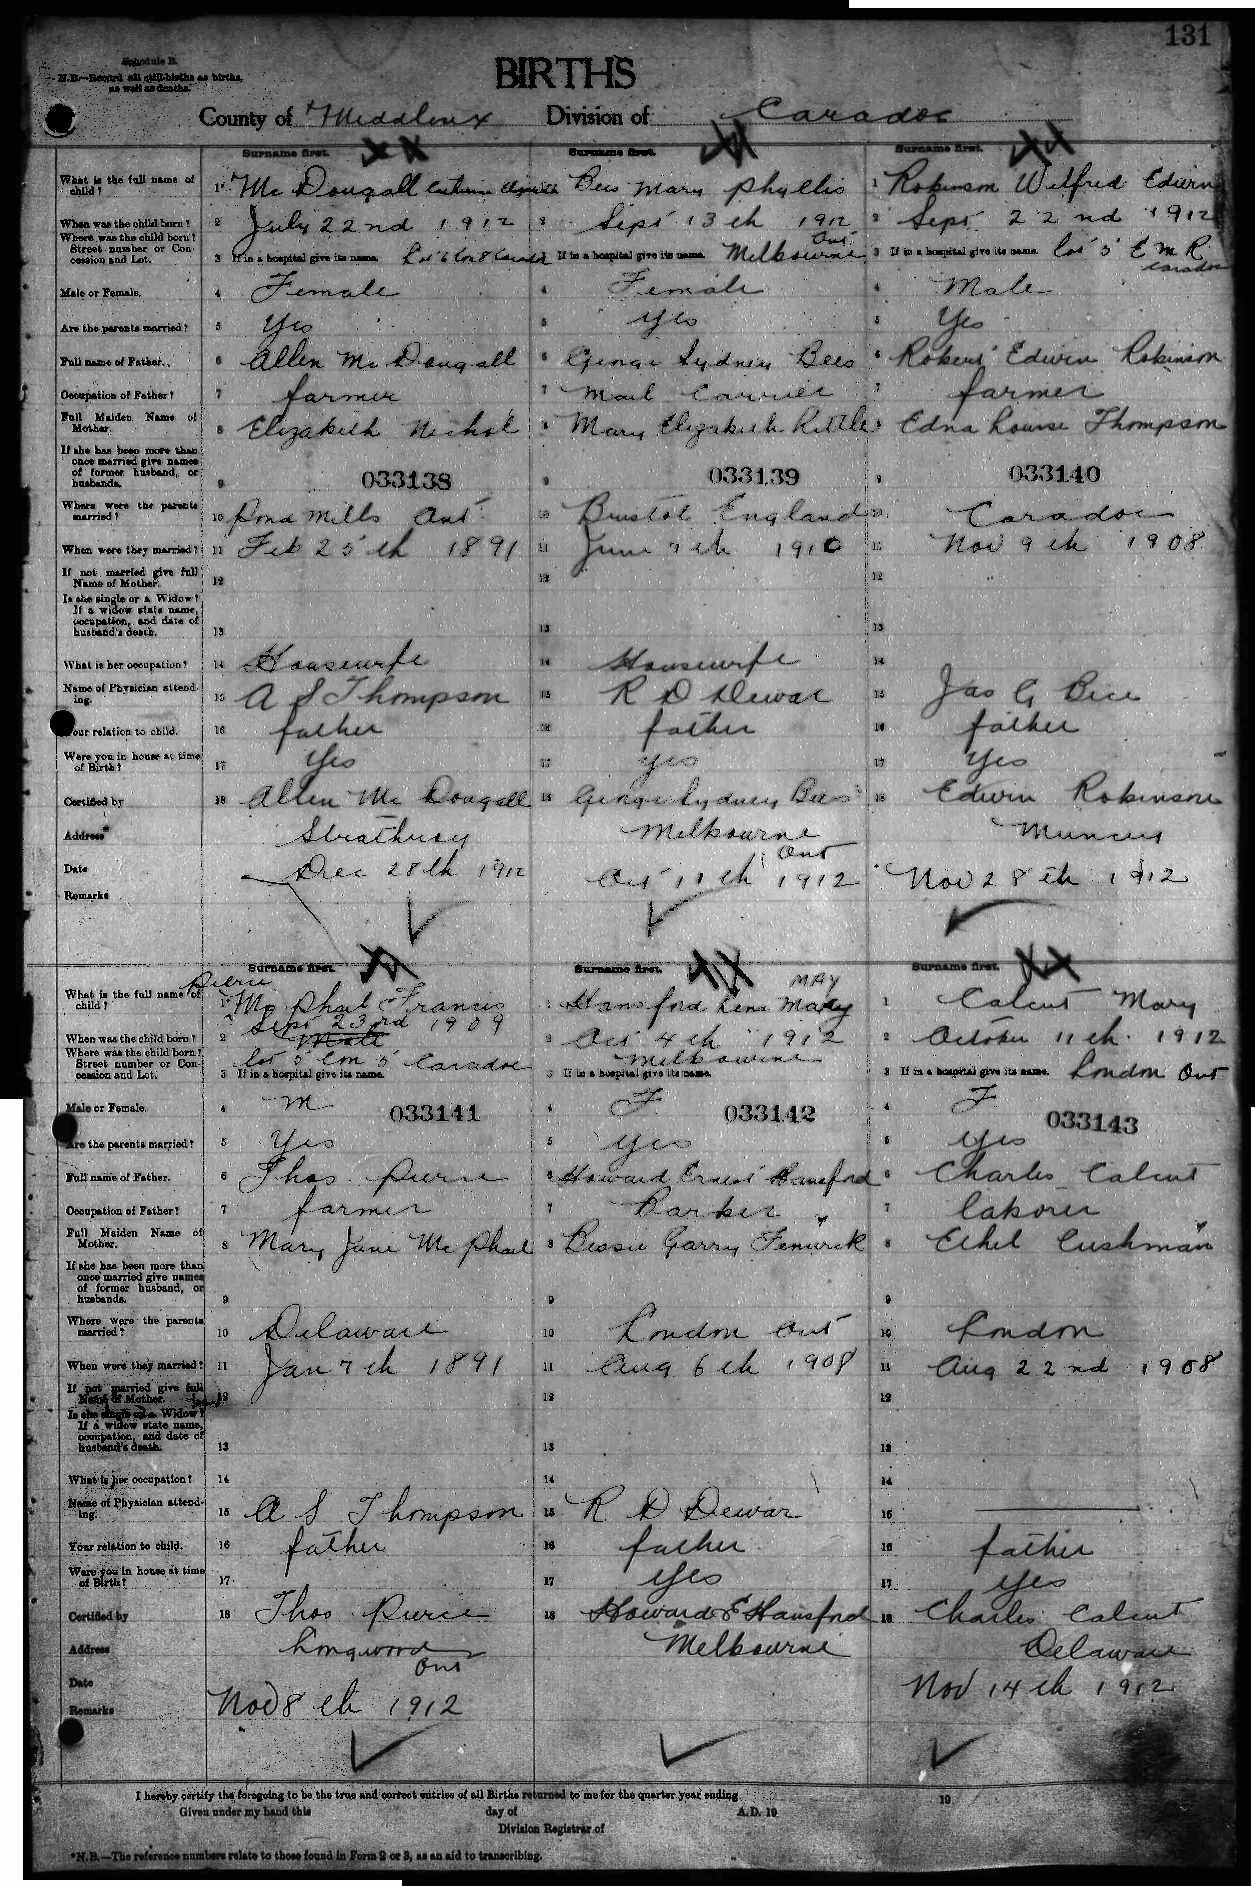 131
Schedule B.
N.B.—Record all still-births as births,
as well as deaths.
BIRTHS
County of Middlesex Division of Caradoc
Surname first. Surname first. Surname first.
What is the full name of child? 1 McDougall Catherine Elizabeth 1 Bees Mary Phyllis 1 Robinson Wilfred Edwin
When was the child born? 2 July 22nd 1912 2 Sept 13th 1912 2 Sept 22nd 1912
Where was the child born? Street number or Concession and Lot. 3 If in a hospital give its name. Lot 6 Con 8 Caradoc 3 If in a hospital give its name. Melbourne Ont 3 If in a hospital give its name. Lot 5 E M R Caradoc
Male or Female. 4 Female 4 Female 4 Male
Are the parents married? 5 Yes 5 yes 5 Yes
Full name of Father. 6 Allen McDougall 6 George Sydney Bees 6 Robert Edwin Robinson
Occupation of Father? 7 farmer 7 Mail Carrier 7 farmer
Full Maiden Name of Mother. 8 Elizabeth Nichol 8 Mary Elizabeth Kettle 8 Edna Louise Thompson
If she has been more than once married give names of former husband, or husbands. 9 033138 9 033139 9 033140
Where were the parents married? 10 Pond Mills Ont 10 Bristol England 10 Caradoc
When were they married? 11 Feb 25th 1891 11 June 7th 1910 11 Nov 9th 1908
If not married give full Name of Mother. 12 12 12
Is she single or a Widow? If a widow state name, occupation, and date of husband's death. 13 13 13
What is her occupation? 14 Housewife 14 Housewife 14
Name of Physician attending. 15 A S Thompson 15 R D Dewar 15 Jas G Bice
Your relation to child. 16 father 16 father 16 father
Were you in house at time of Birth? 17 Yes 17 yes 17 Yes
Certified by 18 Allen McDougall 18 George Sydney Bees 18 Edwin Robinson
Address* Strathroy Melbourne Ont Muncey
Date Dec 28th 1912 Oct 11th 1912 Nov 28th 1912
Remarks
Surname first. Surname first. Surname first.
What is the full name of child? 1 Pierce McPhail Francis 1 Hansford Lena Mary MAY 1 Calcut Mary
When was the child born? 2 Sept 23rd 1909 Male 2 Oct 4th 1912 2 October 11th 1912
Where was the child born? Street number or Concession and Lot. 3 Lot 5 Con 5 Caradoc If in a hospital give its name. 3 Melbourne If in a hospital give its name. 3 If in a hospital give its name. London Ont
Male or Female. 4 M 033141 4 F 033142 4 F 033143
Are the parents married? 5 Yes 5 yes 5 yes
Full name of Father. 6 Thos. Pierce 6 Howard Ernest Hansford 6 Charles Calcut
Occupation of Father? 7 farmer 7 Barber 7 laborer
Full Maiden Name of Mother. 8 Mary Jane McPhail 8 Bessie Garry Fenwick 8 Ethel Cushman
If she has been more than once married give names of former husband, or husbands. 9 9 9
Where were the parents married? 10 Delaware 10 London Ont 10 London
When were they married? 11 Jan 7th 1891 11 Aug 6th 1908 11 Aug 22nd 1908
If not married give full Name of Mother. 12 12 12
Is she single or a Widow? If a widow state name, occupation, and date of husband's death. 13 13 13
What is her occupation? 14 14 14
Name of Physician attending. 15 A S Thompson 15 R D Dewar 15
Your relation to child. 16 father 16 father 16 father
Were you in house at time of Birth? 17 17 Yes 17 yes
Certified by 18 Thos Pierce 18 Howard E Hansford 18 Charles Calcut
Address Longwood Ont Melbourne Delaware
Date Nov 8th 1912 Nov 14th 1912
Remarks
I hereby certify the foregoing to be the true and correct entries of all Births returned to me for the quarter year ending 19
Given under my hand this day of A.D. 19
Division Registrar of
*N.B.—The reference numbers relate to those found in Form 2 or 3, as an aid to transcribing.